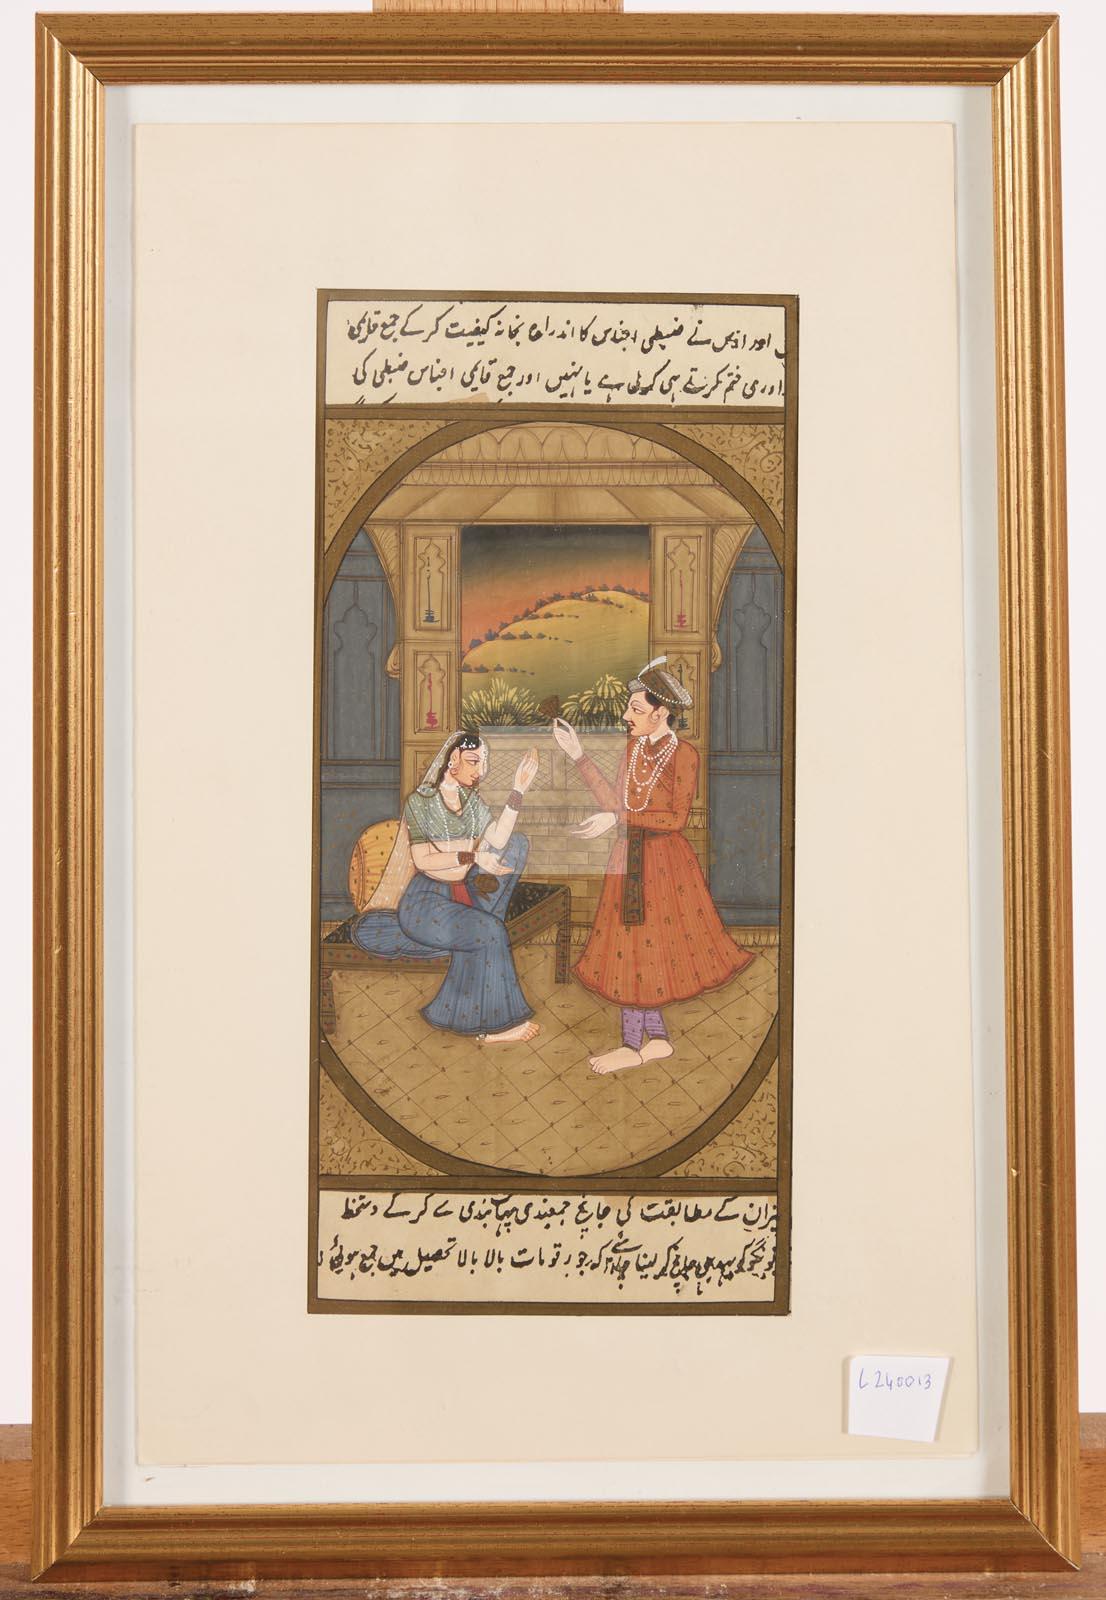 اور انہیں نے ضبطی اجناس کا اندراج بخانہ کیفیت کر کے جمع قایمی
داوری ختم کرتے ہی کر لی ہے یا نہیں اور جمع قایمی اجناس ضبطی کی
میزان کے مطابقت کی جانچ جمعبندی سے کر کے دستخط
کر لینا چاہئے کہ جو رقومات بالا بالا تحصیل میں جمع ہوئی
L240013